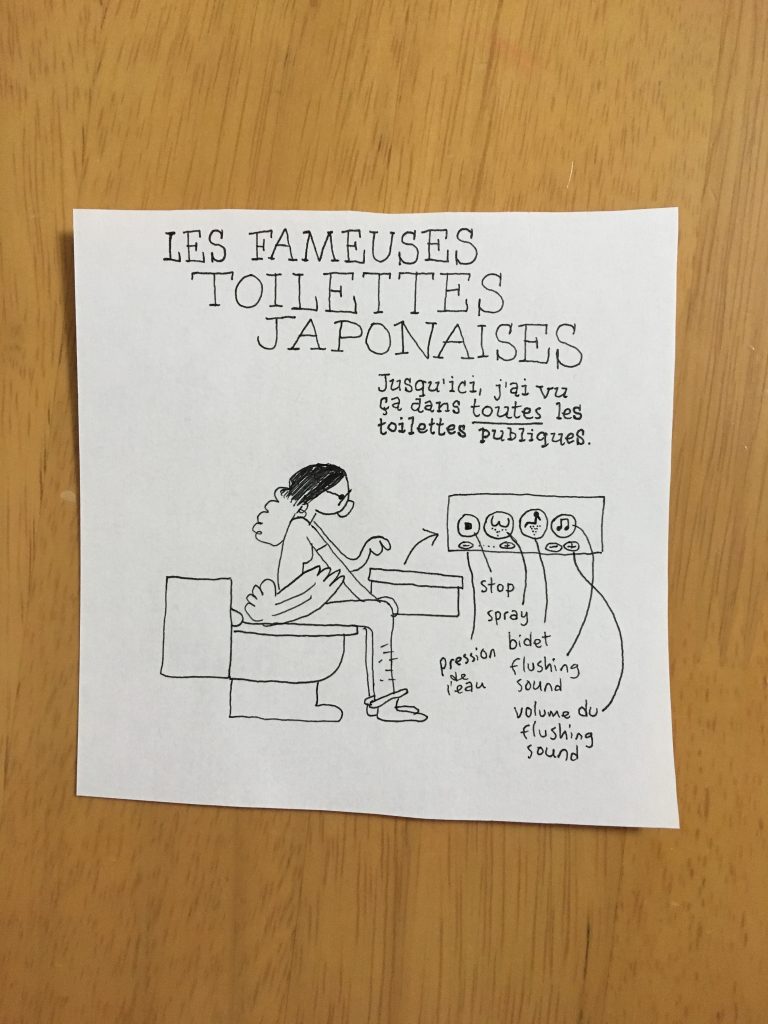 LES FAMEUSES
TOILETTES
JAPONAISES
Jusqu'ici, j'ai vu
ça dans toutes les
toilettes publiques.
stop
spray
bidet
flushing
sound
pression
de
l'eau
volume du
flushing
sound